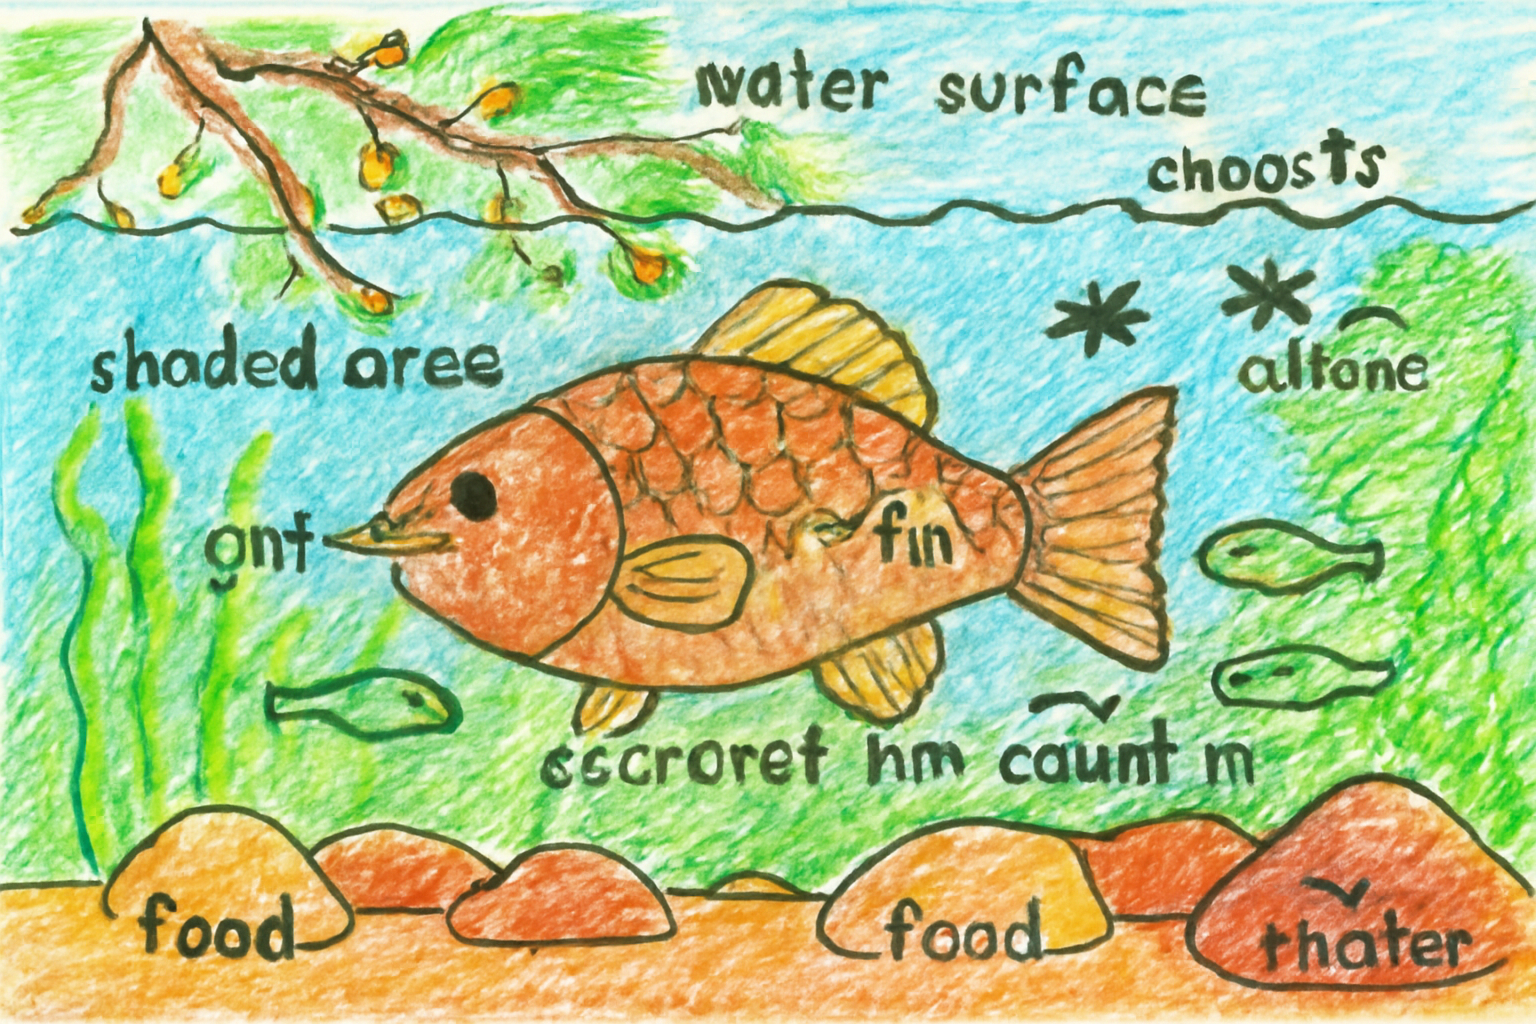 water surface
choosts
shaded aree
altone
gnf
fin
sscroret hm caunt m
food
food
thater